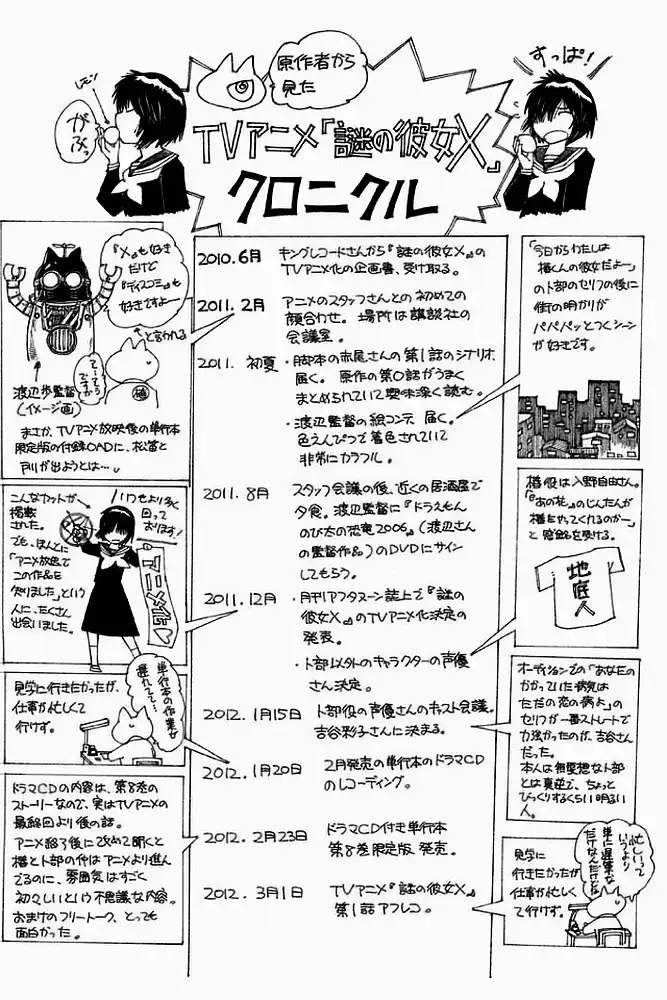 原作者から
見た
TVアニメ『謎の彼女X』
クロニクル
レモン
がぶっ
すっぱ!
2010.6月
キングレコードさんから『謎の彼女X』の
TVアニメ化の企画書、受け取る。
2011.2月
アニメのスタッフさんとの初めての
顔合わせ。場所は講談社の
会議室。
2011.初夏
・脚本の赤尾さんの第1話のシナリオ、
届く。原作の第0話がうまく
まとめられていて興味深く読む。
・渡辺監督の絵コンテ、届く。
色えんぴつで着色されていて
非常にカラフル。
2011.8月
スタッフ会議の後、近くの居酒屋で
夕食。渡辺監督に『ドラえもん
のび太の恐竜2006』(渡辺さん
の監督作品)のDVDにサイン
してもらう。
2011.12月
・月刊アフタヌーン誌上で『謎の
彼女X』のTVアニメ化決定の
発表。
・卜部以外のキャラクターの声優
さん決定。
2012.1月15日
卜部役の声優さんのキャスト会議。
吉谷彩子さんに決まる。
2012.1月20日
2月発売の単行本のドラマCD
のレコーディング。
2012.2月23日
ドラマCD付き単行本
第8巻限定版 発売。
2012.3月1日
TVアニメ『謎の彼女X』
第1話アフレコ。
『X』も好き
だけど
『ディスコミ』も
好きですよー
と言われる
てっ…そう
ですか
植
渡辺歩監督
(イメージ画)
まさか、TVアニメ放映後の単行本
限定版の付録OADに、松笛と
戸川が出ようとは…。
こんなカットが
掲載
された。
でも、ほんとに
「アニメ放送で
この作品を
知りました」という
人に、たくさん
出会いました。
いつもより多く
回って
おります!
アニメ化♥
見学に行きたかったが、
仕事が忙しくて
行けず。
単行本の作業が
遅れてて…
ドラマCDの内容は、第8巻の
ストーリーなので、実はTVアニメの
最終回より後の話。
アニメ終了後に改めて聞くと
椿と卜部の仲はアニメより進ん
でるのに、雰囲気はすごく
初々しいという不思議な内容。
おまけのフリートーク、とっても
面白かった。
「今日からわたしは
椿くんの彼女だよー」
の卜部のセリフの後に
街の明かりが
パパパッとつくシーン
が好きです。
椿役は入野自由さん。
「『あの花』のじんたんが
椿をやってくれるのかー」
と感銘を受ける。
地底人
オーディションでの「あなたの
かかっていた病気は
ただの恋の病よ」の
セリフが一番ストレートで
力強かったのが、吉谷さん
だった。
本人は無愛想な卜部
とは真逆で、ちょっと
びっくりするくらい明るい
人。
見学に
行きたかったが
仕事が忙しく
て行けず。
忙しいって
いうより
単に遅筆な
だけなんだけどね